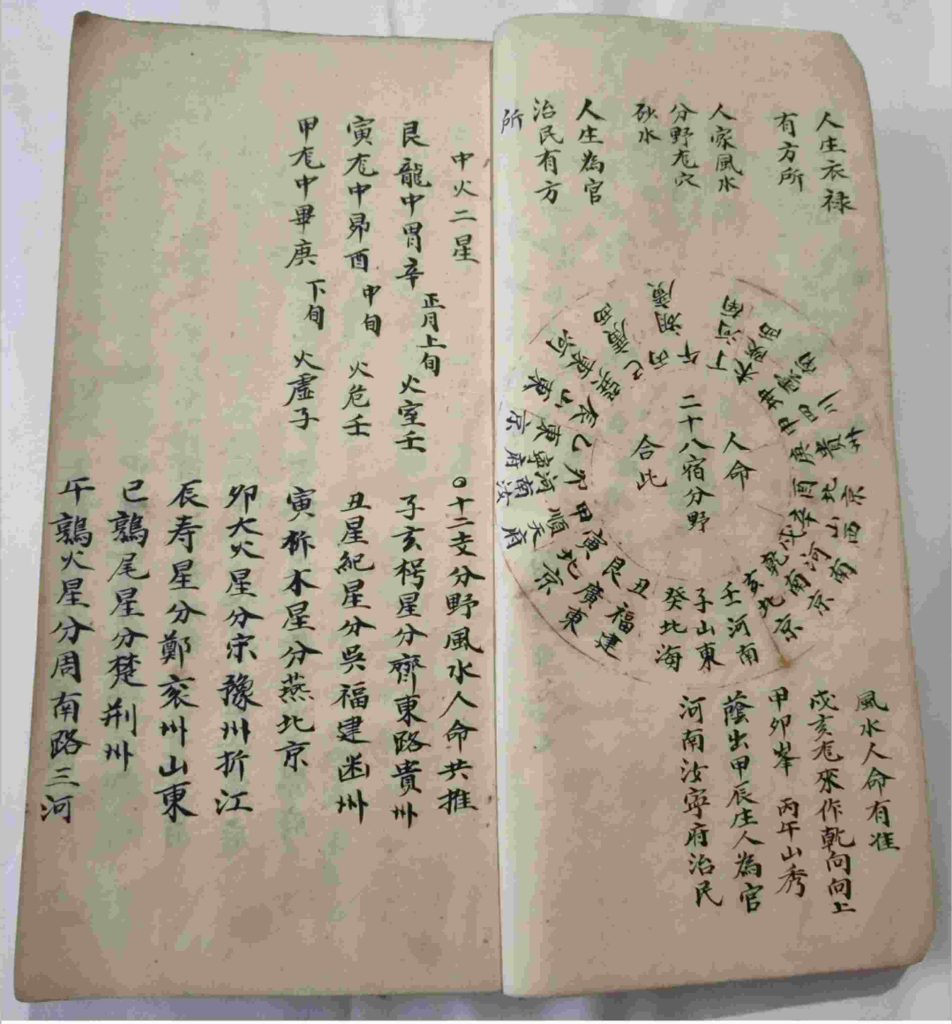 人生衣禄
有方所
人家風水
分野尨穴
砂水
人生為官
治民有方
所
二十八宿分野
人命
合此
丑福建
艮廣東
寅北京
甲順天府
卯河南汝
乙寧府
辰山東
巽河東
巳廣西
丙午湖廣
丁河南
未陝西
坤雲南
申四川
庚貴州
酉北京
辛山西
戌河南
乾南京
亥北京
壬河南
子山東
癸北海
風水人命有准
戍亥尨來作乾向向上
甲卯峯 丙午山秀
蔭出甲辰生人為官
河南汝寧府治民
中火二星
艮龍中胃辛 正月上旬 火室壬
寅尨中昴酉 中旬 火危壬
甲尨中畢庚 下旬 火虛子
○十二支分野風水人命共推
子亥枵星分齊東路貴州
丑星紀星分吳福建幽州
寅析木星分燕北京
卯大火星分宗豫州折江
辰寿星分鄭兖州山東
巳鶉尾星分楚荆州
午鶉火星分周南路三河